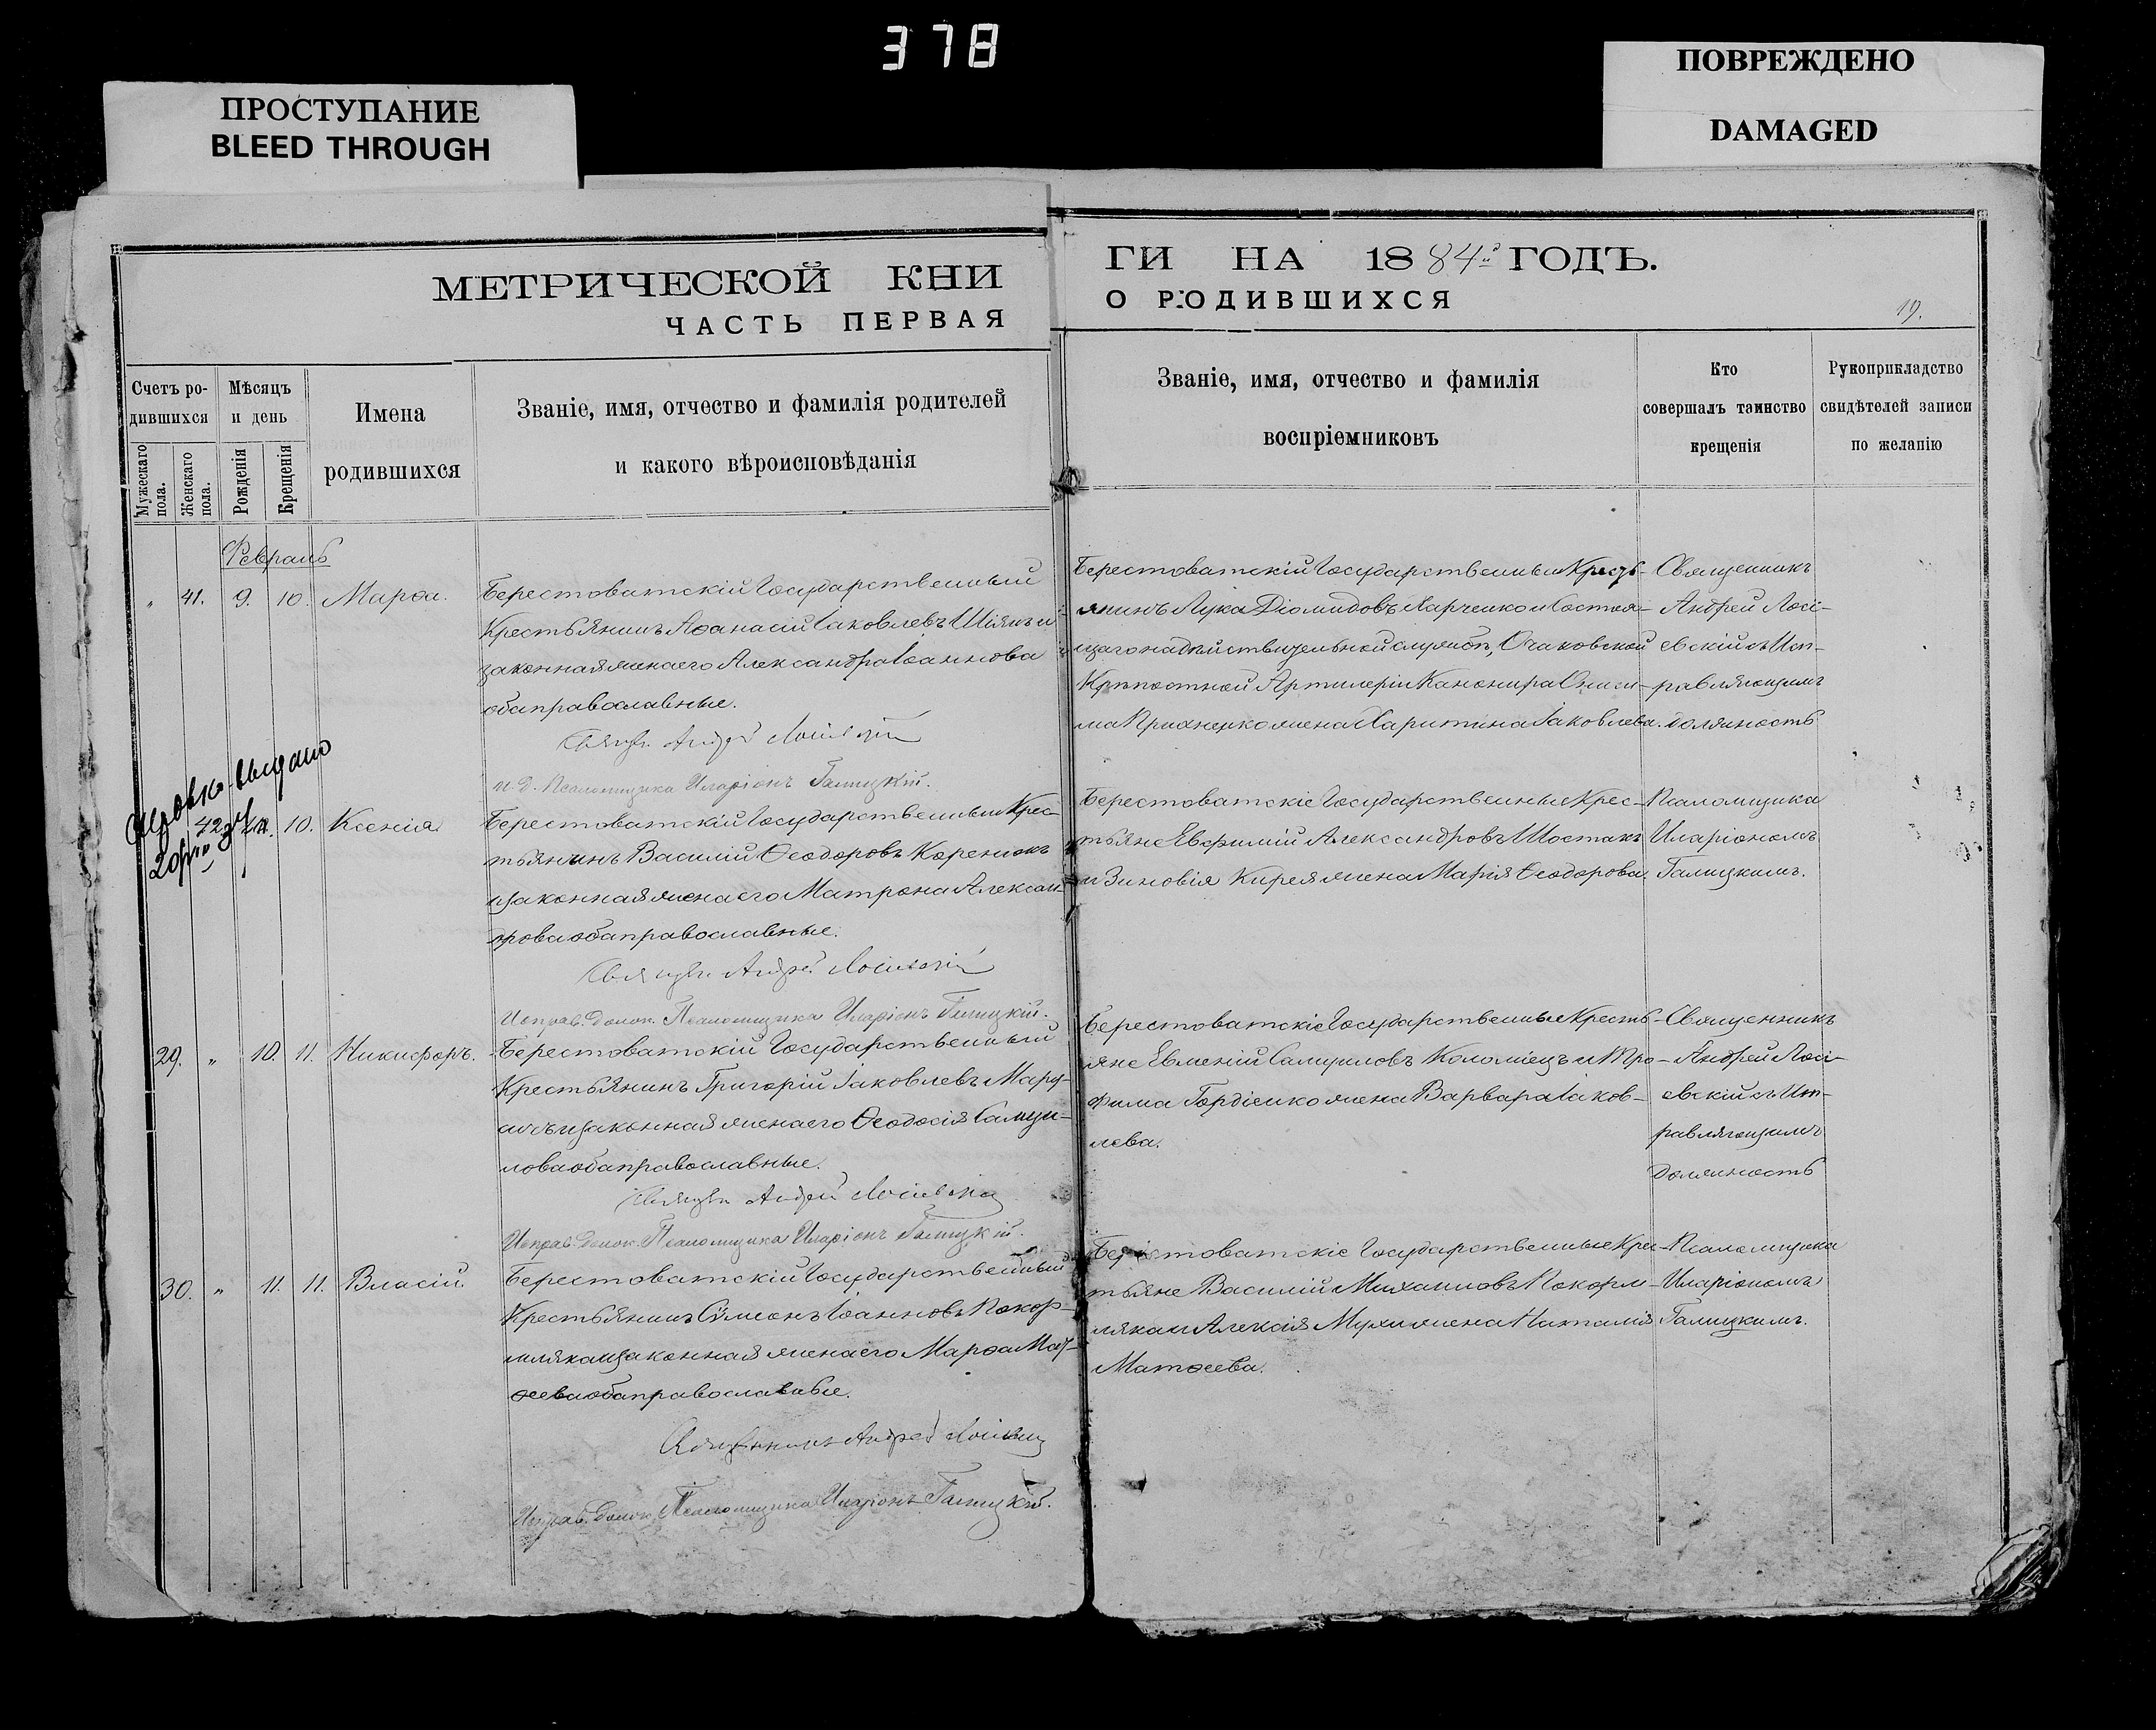 378
ПРОСТУПАНИЕ
BLEED THROUGH
ПОВРЕЖДЕНО
DAMAGED
МЕТРИЧЕСКОЙ КНИ
ЧАСТЬ ПЕРВАЯ
ГИ НА 1884й ГОДЪ.
О РОДИВШИХСЯ
19.
Счетъ ро-
дившихся
Мужескаго пола.
Женскаго пола.
Мѣсяцъ
и день
Рожденія
Крещенія
Имена
родившихся
Званіе, имя, отчество и фамилія родителей
и какого вѣроисповѣданія
Званіе, имя, отчество и фамилія
воспріемниковъ
Кто
совершалъ таинство
крещенія
Рукоприкладство
свидѣтелей записи
по желанію
Февраль
" 41. 9. 10. Марѳа.
Берестоватскій Государственный
Крестьянинъ Аѳанасій Іаковлевъ Шіянъ и
законная жена его Александра Іоаннова
оба православные.
Священ. Андрей Лосіевскій
и. д. Псаломщика Иларіонъ Галицкій.
Берестоватскій Государственный Кресть-
янинъ Лука Діомидовъ Харченко и Состоя-
щаго на дѣйствительной службѣ, Очаковской
Крѣпостной Артилеріи Канонира Ониси-
ма жена Харитина Іаковлева.
Священникъ
Андрей Лосі-
евскій съ Исп-
равляющимъ
должность
выдано
42. 10. Ксенія
Берестоватскій Государственный Крес-
тьянинъ Василій Ѳеодоровъ Коренюкъ
и законная жена его Матрона Алексан-
дрова оба православные.
Священ. Андрей Лосіевскій
Исправ. долж. Псаломщика Иларіонъ Галицкій.
Берестоватскіе Государственные Крес-
тьяне Евфимій Александровъ Шостакъ
и Зиновія Кирея жена Марія Ѳеодорова.
Псаломщика
Иларіономъ
Галицкимъ.
29. " 10. 11. Никифоръ.
Берестоватскій Государственный
Крестьянинъ Григорій Іаковлевъ
и законная жена его Ѳеодосія Самуи-
лова оба православные.
Священ. Андрей Лосіевскій
Исправ. долж. Псаломщика Иларіонъ Галицкій.
Берестоватскіе Государственные Кресть-
яне Евменій Самуиловъ Коломіецъ и Тро-
фима Гордіенко жена Варвара Іаков-
лева.
Священникъ
Андрей Лосі-
евскій съ Исп-
равляющимъ
должность
30. " 11. 11. Власій.
Берестоватскій Государственный
Крестьянинъ Сѵмеонъ Іоанновъ Покор-
мляка и законная жена его Марѳа Мат-
ѳеева оба православные.
Священникъ Андрей Лосіевскій
Исправ. долж. Псаломщика Иларіонъ Галицкій.
Берестоватскіе Государственные Крес-
тьяне Василій Михаиловъ Покорм-
ляка и Алексія Мухи жена Наталія
Матѳеева.
Псаломщика
Иларіономъ
Галицкимъ.